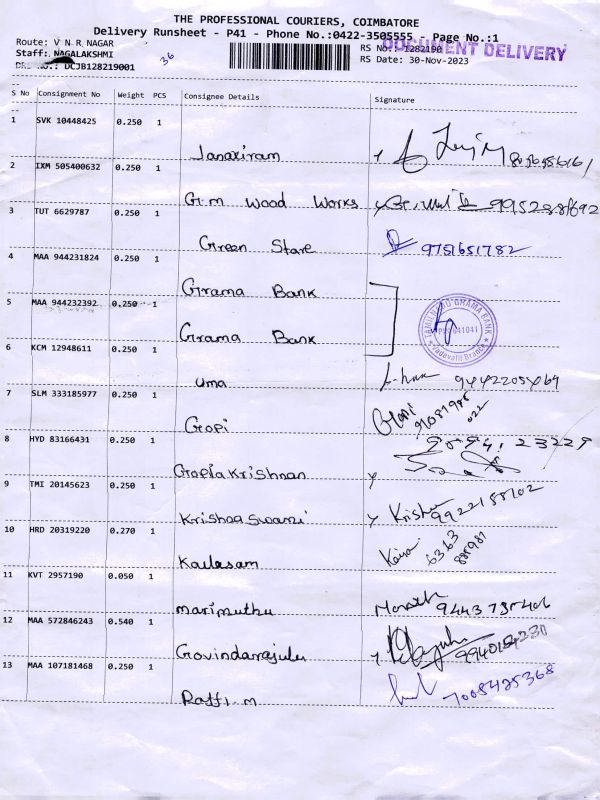 THE PROFESSIONAL COURIERS, COIMBATORE
Delivery Runsheet - P41 - Phone No.:0422-3505555 - Page No.:1
Route: V N R NAGAR
RS No.: 1282190
DOCUMENT DELIVERY
Staff: NAGALAKSHMI
RS Date: 30-Nov-2023
DRS No.: DCJB128219001
36
S No Consignment No Weight PCS Consignee Details Signature
1 SVK 10448425 0.250 1
Janakiram
2 IXM 505400632 0.250 1
G.m Wood Works
3 TUT 6629787 0.250 1
Green Store 9751651782
4 MAA 944231824 0.250 1
Grama Bank
5 MAA 944232392 0.250 1
Grama Bank
TAMILNADU GRAMA BANK
641041
Vadavalli Branch
6 KCM 12948611 0.250 1
Uma
7 SLM 333185977 0.250 1
Gopi Gopi
8 HYD 83166431 0.250 1
Gopla Krishnan
9 TMI 20145623 0.250 1
Krishna Swami
10 HRD 20319220 0.270 1
Kailasam
11 KVT 2957190 0.050 1
Marimuthu
12 MAA 572846243 0.540 1
Govindarajulu
13 MAA 107181468 0.250 1
Raffi. M 7008425368